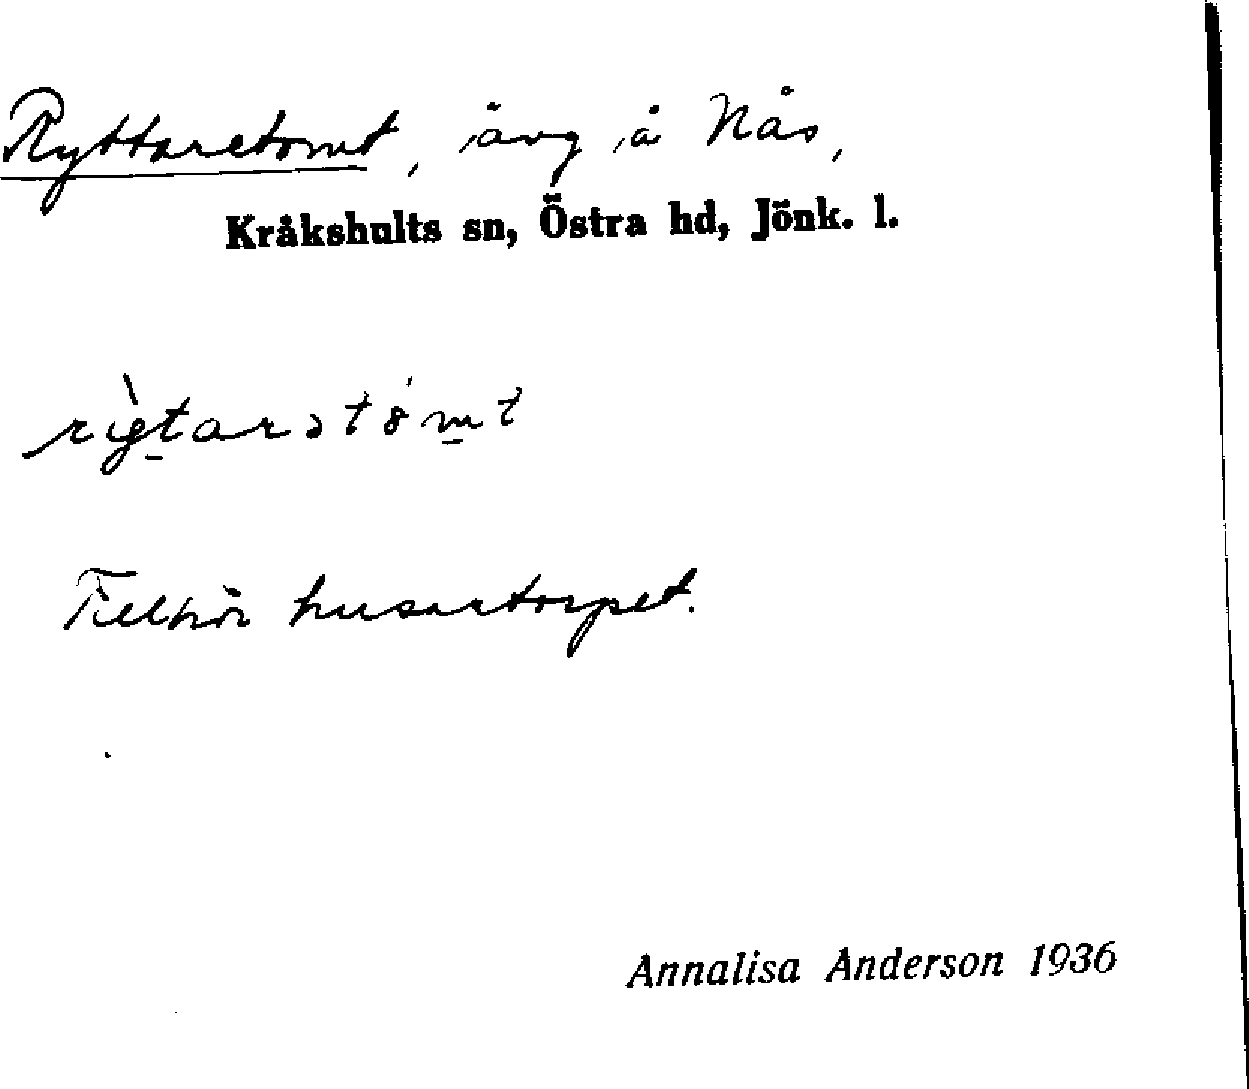 Ryttaretomt, äng å Nås,
Kråkshults sn, Östra hd, Jönk. l.
Tillhör husartorpet.
Annalisa Anderson 1936